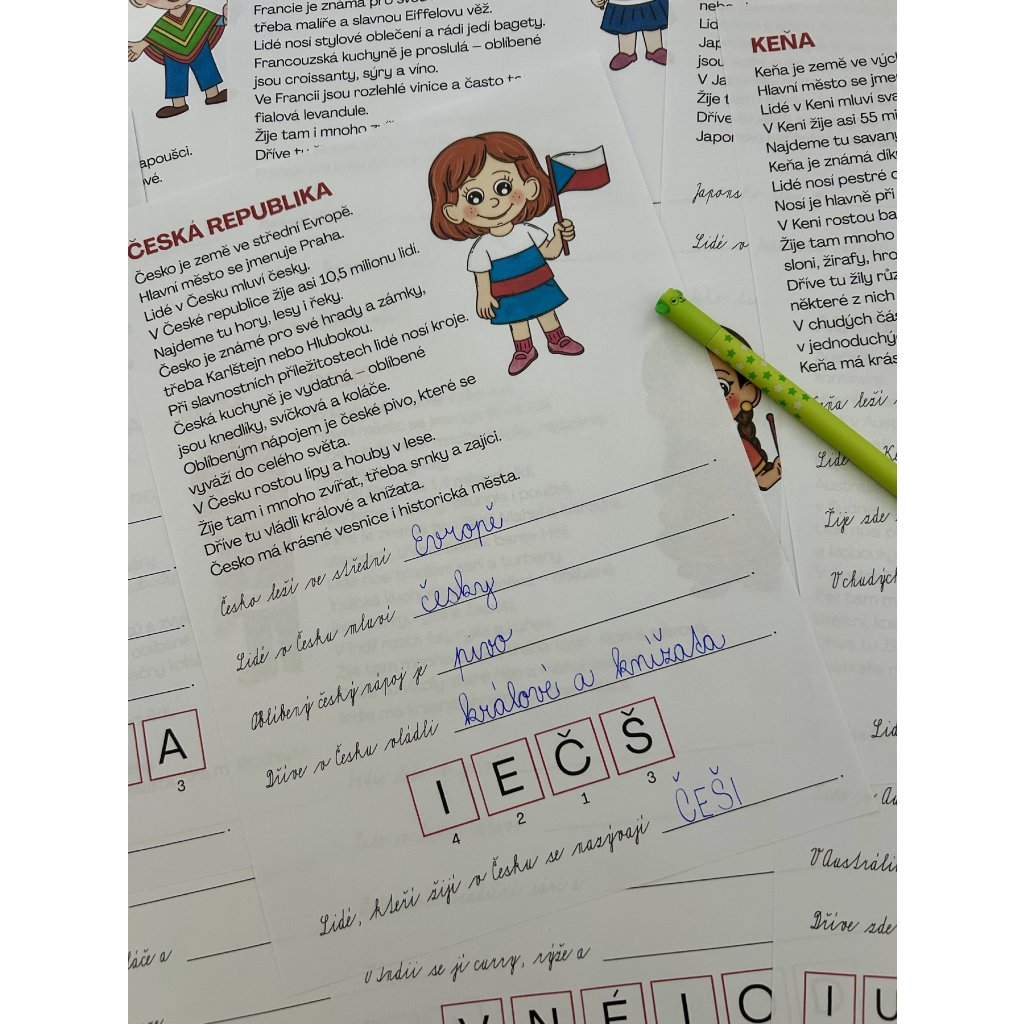 Francie je známá pro
třeba malíře a slavnou Eiffelovu věž.
Lidé nosí stylové oblečení a rádi jedí bagety.
Francouzská kuchyně je proslulá – oblíbené
jsou croissanty, sýry a víno.
Ve Francii jsou rozlehlé vinice a často
fialová levandule.
Žije tam i mnoho
Dříve
ČESKÁ REPUBLIKA
Česko je země ve střední Evropě.
Hlavní město se jmenuje Praha.
Lidé v Česku mluví česky.
V České republice žije asi 10,5 milionu lidí.
Najdeme tu hory, lesy i řeky.
Česko je známé pro své hrady a zámky,
třeba Karlštejn nebo Hlubokou.
Při slavnostních příležitostech lidé nosí kroje.
Česká kuchyně je vydatná – oblíbené
jsou knedlíky, svíčková a koláče.
Oblíbeným nápojem je české pivo, které se
vyváží do celého světa.
V Česku rostou lípy a houby v lese.
Žije tam i mnoho zvířat, třeba srnky a zajíci.
Dříve tu vládli králové a knížata.
Česko má krásné vesnice i historická města.
Česko leží ve střední Evropě.
Lidé v Česku mluví česky.
Oblíbený český nápoj je pivo.
Dříve v Česku vládli králové a knížata.
I E Č Š
4 2 1 3
Lidé, kteří žijí v Česku se nazývají ČEŠI.
KEŇA
Keňa je země ve
Hlavní město se
Lidé v Keni mluví
V Keni žije asi 55
Najdeme tu
Keňa je známá
Lidé nosí pestré
Nosí je hlavně při
V Keni rostou
Žije tam mnoho
sloni, žirafy,
Dříve tu žily
některé z nich
V chudých
v
Keňa má
leží
Lidé
Žije zde
V chudých
A
3
v Indii se jí curry, rýže a
V Austrálii
Dříve zde
V N É I C
I U